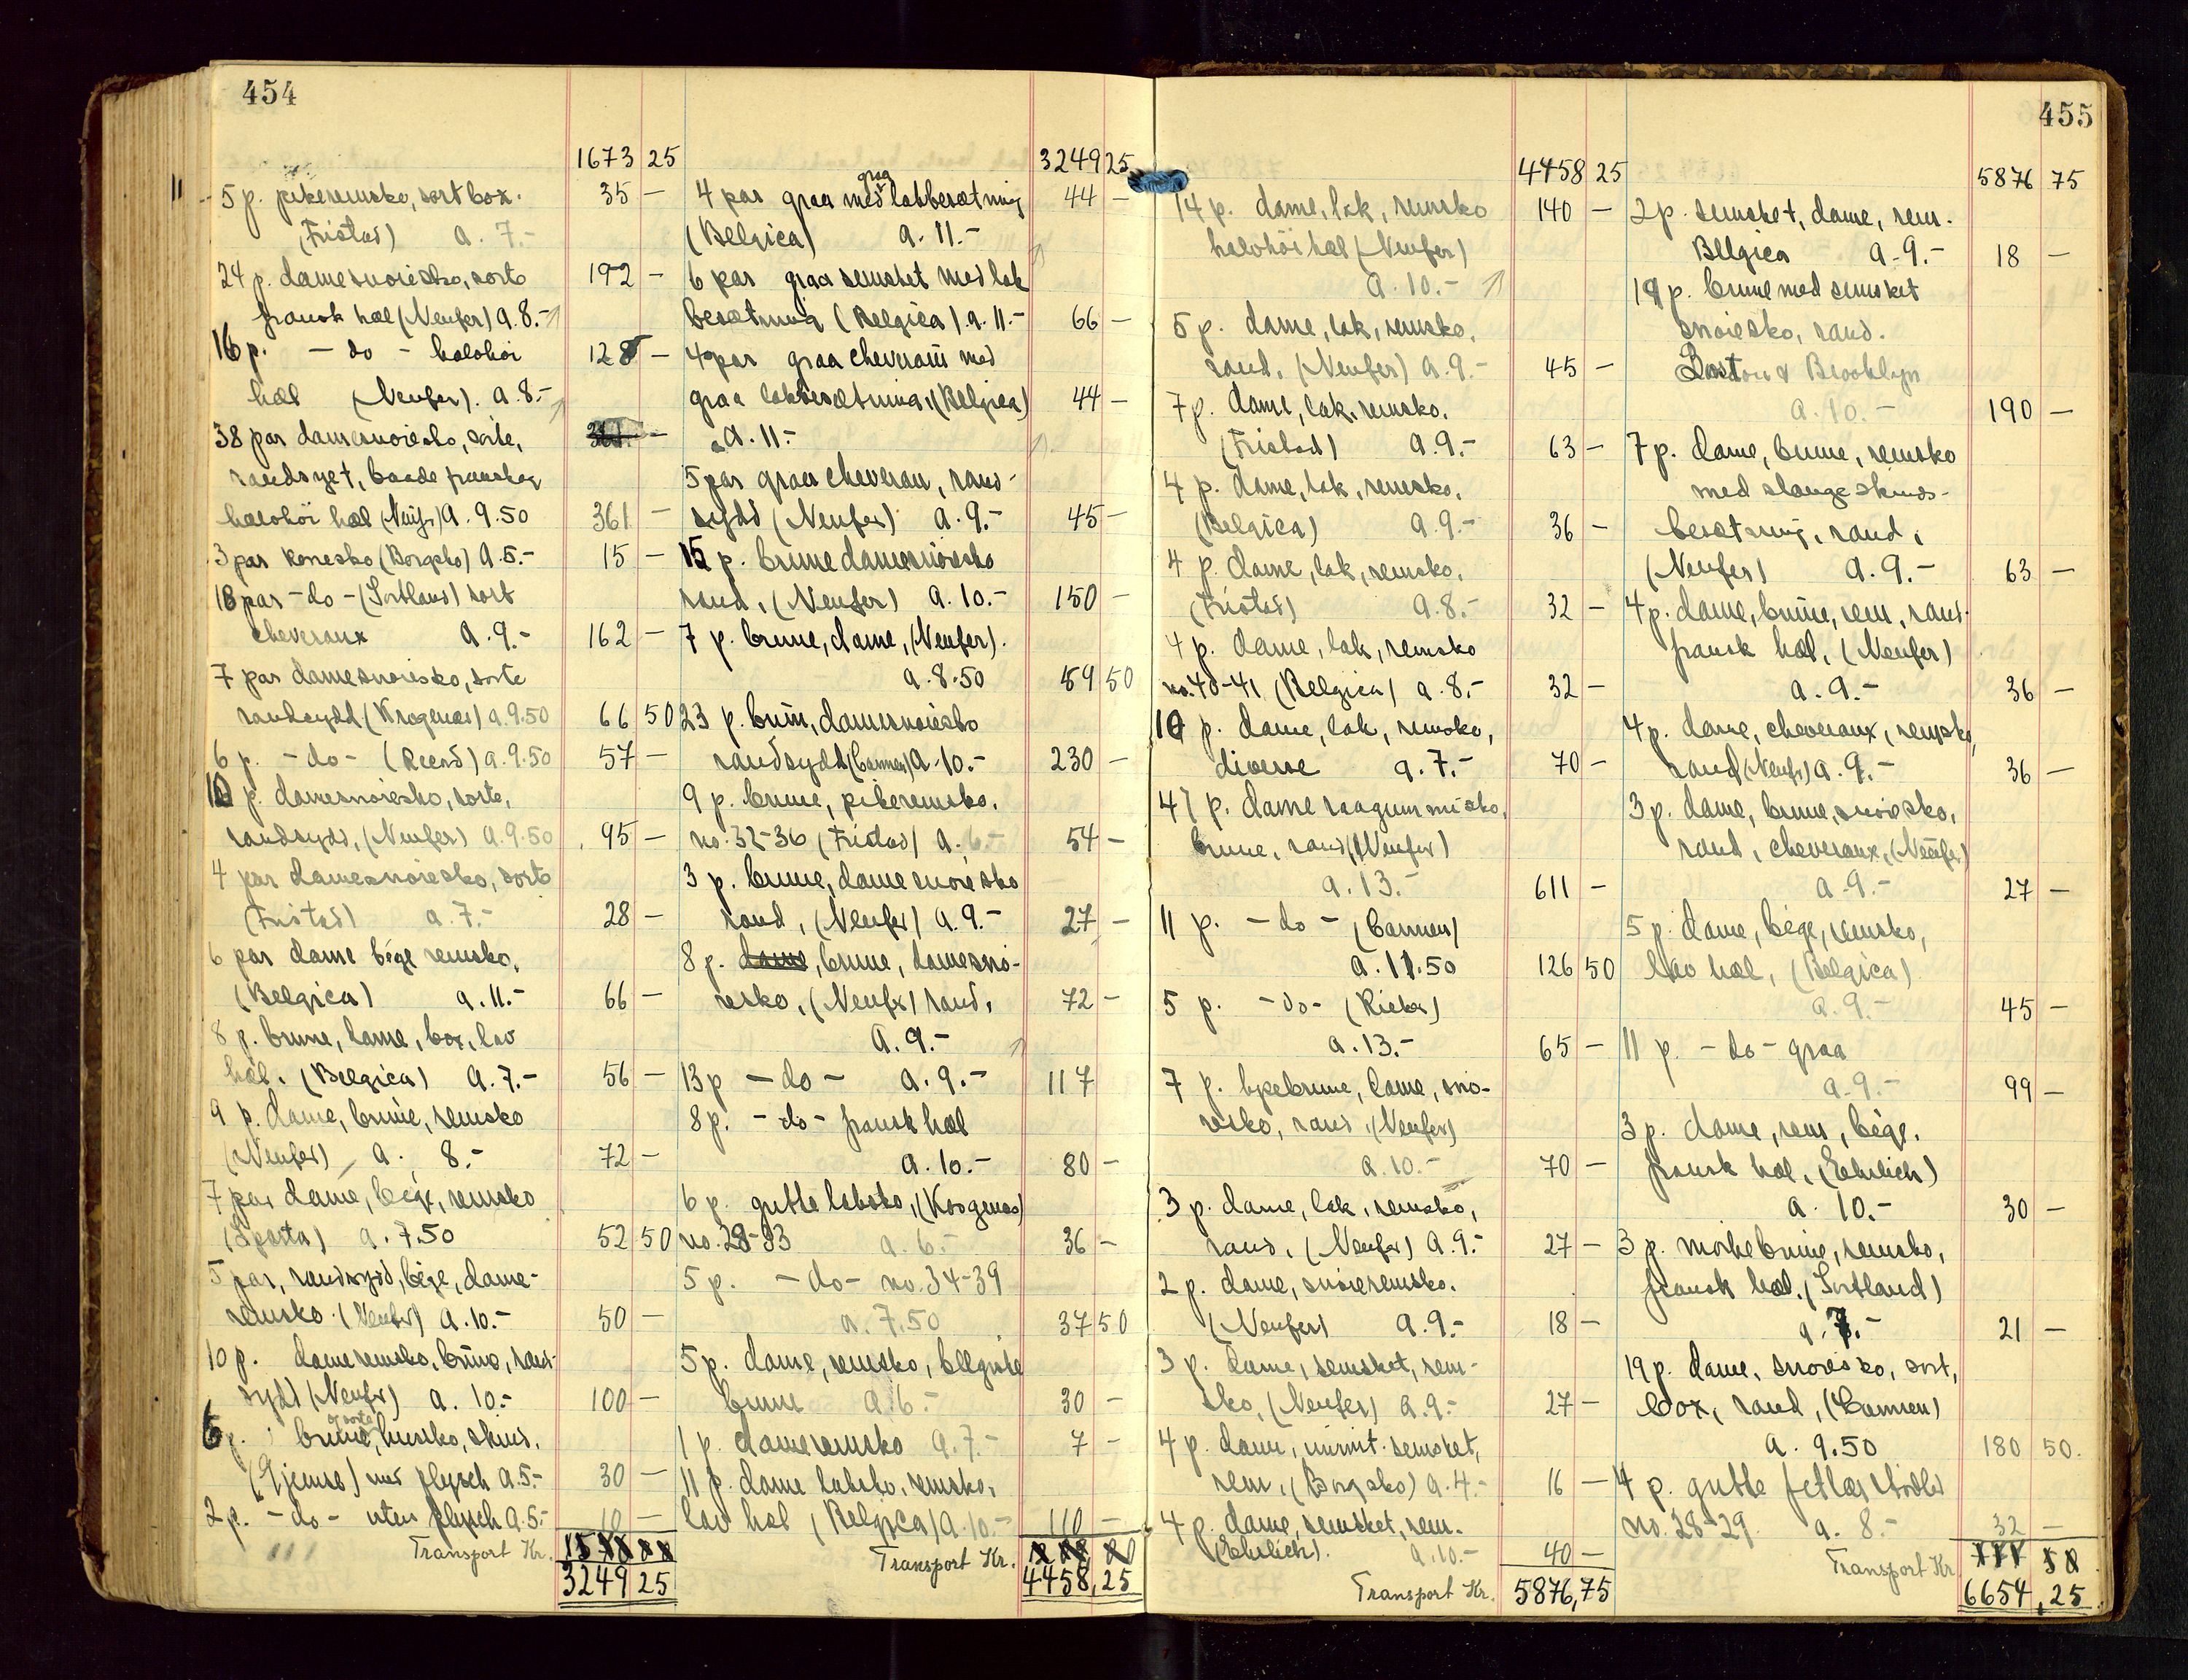 454
1673 25
5 p. pikeremsko, sort box. 35 —
(Fristad) a. 7.-
24 p. damesnøiesko, sorte 192 —
fransk hæl (Neufer) a. 8.-
16 p. - do - halvhøi 128 —
hæl (Neufer). a. 8.-
38 par damesnøiesko, sorte,
randsyet, baade fransk og
halvhøi hæl (Neufer) a. 9.50 361 —
3 par konesko (Borgsko) a. 5.- 15 —
18 par - do - (Sortland) sort
cheveraux a. 9.- 162 —
7 par damesnøiesko, sorte
randsydd (Krogenæs) a. 9.50 66 50
6 p. - do - a. 9.50 57 —
10 p. damesnøiesko, sorte,
randsydd, (Neufer) a. 9.50 95 —
4 par damesnøiesko, sorte
(Fristad) a. 7.- 28 —
6 par dame bége remsko,
(Belgica) a. 11.- 66 —
8 p. brune, dame, box, lav
hæl. (Belgica) a. 7.- 56 —
9 p. dame, brune, remsko
(Neufer) a. 8.- 72 —
7 par dame, bége, remsko
(Sparta) a. 7.50 52 50
5 par, randsydd, bége, dame-
remsko (Neufer) a. 10.- 50 —
10 p. dameremsko, brune, rand-
sydd (Neufer) a. 10.- 100 —
og sorte
6 p. brune, hussko, skind,
(Gjemse) med plysch a. 5.- 30 —
2 p. - do - uten plysch a. 5.- 10 —
Transport Kr.
3249 25
3249 25
graa
4 par graa med lakbesætning 44 —
(Belgica) a. 11.-
6 par graa semsket med lak
besætning (Belgica) a. 11.- 66 —
4 par graa cheveraux med
graa lakbesætning, (Belgica) 44 —
a. 11.-
5 par graa cheveraux, rand-
sydd (Neufer) a. 9.- 45 —
15 p. brune damesnøiesko
rand, (Neufer) a. 10.- 150 —
7 p. brune, dame, (Neufer).
a. 8.50 59 50
23 p. brun, damesnøiesko
randsydd (Carmen) a. 10.- 230 —
9 p. brune, pikeremsko,
no. 32-36 (Fristad) a. 6.- 54 —
3 p. brune, damesnøiesko
rand, (Neufer) a. 9.- 27 —
8 p. dame, brune, damesnø-
iesko, (Neufer) rand, 72 —
a. 9.-
13 p - do - a. 9.- 117
8 p. - do - fransk hæl
a. 10.- 80 —
6 p. gutte laksko, (Krogenæs)
no. 28-33 a. 6.- 36 —
5 p. - do - no. 34-39
a. 7.50 37 50
5 p. dame, remsko, bllgule
brune a. 6.- 30 —
1 p. dameremsko a. 7.- 7 —
11 p. dame laksko, remsko,
lav hæl (Belgica) a. 10.- 110 —
Transport Kr.
4458,25
455
4458 25
14 p. dame, lak, remsko 140 —
halvhøi hæl (Neufer)
a. 10.-
5 p. dame, lak, remsko,
rand, (Neufer) a. 9.- 45 —
7 p. dame, lak, remsko,
(Fristad) a. 9.- 63 —
4 p. dame, lak, remsko,
(Belgica) a. 9.- 36 —
4 p. dame, lak, remsko,
(Fristad) a. 8.- 32 —
4 p. dame, lak, remsko
no. 40-41 (Belgica) a. 8.- 32 —
10 p. dame, lak, remsko,
diverse a. 7.- 70 —
47 p. dame raagummisko,
brune, rand (Neufer)
a. 13.- 611 —
11 p. - do - (Carmen)
a. 11.50 126 50
5 p. - do - (Rieber)
a. 13.- 65 —
7 p. lysebrune, dame, snø-
iesko, rand, (Neufer)
a. 10.- 70 —
3 p. dame, lak, remsko,
rand, (Neufer) a. 9.- 27 —
2 p. dame, snøieremsko,
(Neufer) a. 9.- 18 —
3 p. dame, semsket, rem-
sko, (Neufer) a. 9.- 27 —
4 p. dame, immit. semsket,
rem, (Borgsko) a. 4.- 16 —
4 p. dame, semsket, rem.
(Ehrlich). a. 10.- 40 —
Transport Kr. 5876,75
5876 75
2 p. semsket, dame, rem.
Bllgica a. 9.- 18 —
19 p. brune med semsket
snøiesko, rand.
Boston & Brooklyn
a. 10.- 190 —
7 p. dame, brune, remsko
med slangeskinds-
besætning, rand,
(Neufer) a. 9.- 63 —
4 p. dame, brune, rem, rand-
fransk hæl, (Neufer)
a. 9.- 36 —
4 p. dame, cheveraux, remsko,
rand (Neufer) a. 9.- 36 —
3 p. dame, brune, snøiesko,
rand, cheveraux, (Neufer)
a. 9.- 27 —
5 p. dame, bége, remsko,
lav hæl, (Belgica).
a. 9.- 45 —
11 p. - do - graa
a. 9.- 99 —
3 p. dame, rem, bége,
fransk hæl, (Ehrlich)
a. 10.- 30 —
3 p. mørkebrune, remsko,
fransk hæl, (Sortland)
a. 7.- 21 —
19 p. dame, snøiesko, sort,
box, rand, (Carmen)
a. 9.50 180 50.
4 p. gutte fetlær støvler
no. 28-29. a. 8.- 32 —
Transport Kr.
6654,25